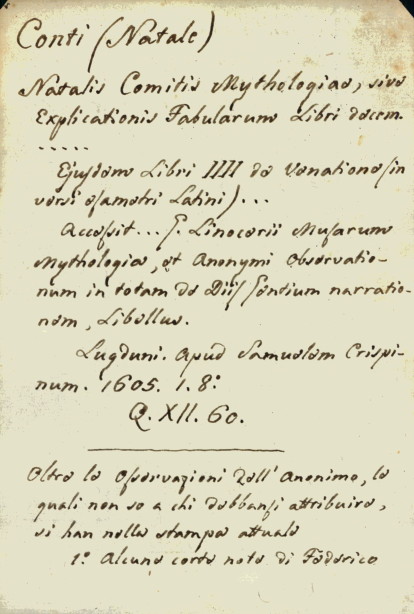 Conti (Natale)
Natalis Comitis Mythologiae, sive
Explicationis Fabularum Libri decem.
.....
Ejusdem Libri IIII de Venatione (in
versi esametri Latini)...
Accessit... G. Linocerii Musarum
Mythologia, et Anonymi Observatio-
num in totam de Diis Gentium narratio-
nem, Libellus.
Lugduni. Apud Samuelem Crispi-
num. 1605. 1. 8.º
Q. XII. 60.
Oltre le Osservazioni dell'Anonimo, le
quali non so a chi debbansi attribuire,
si han nella stampa attuale
1.º Alcune corte note di Federico